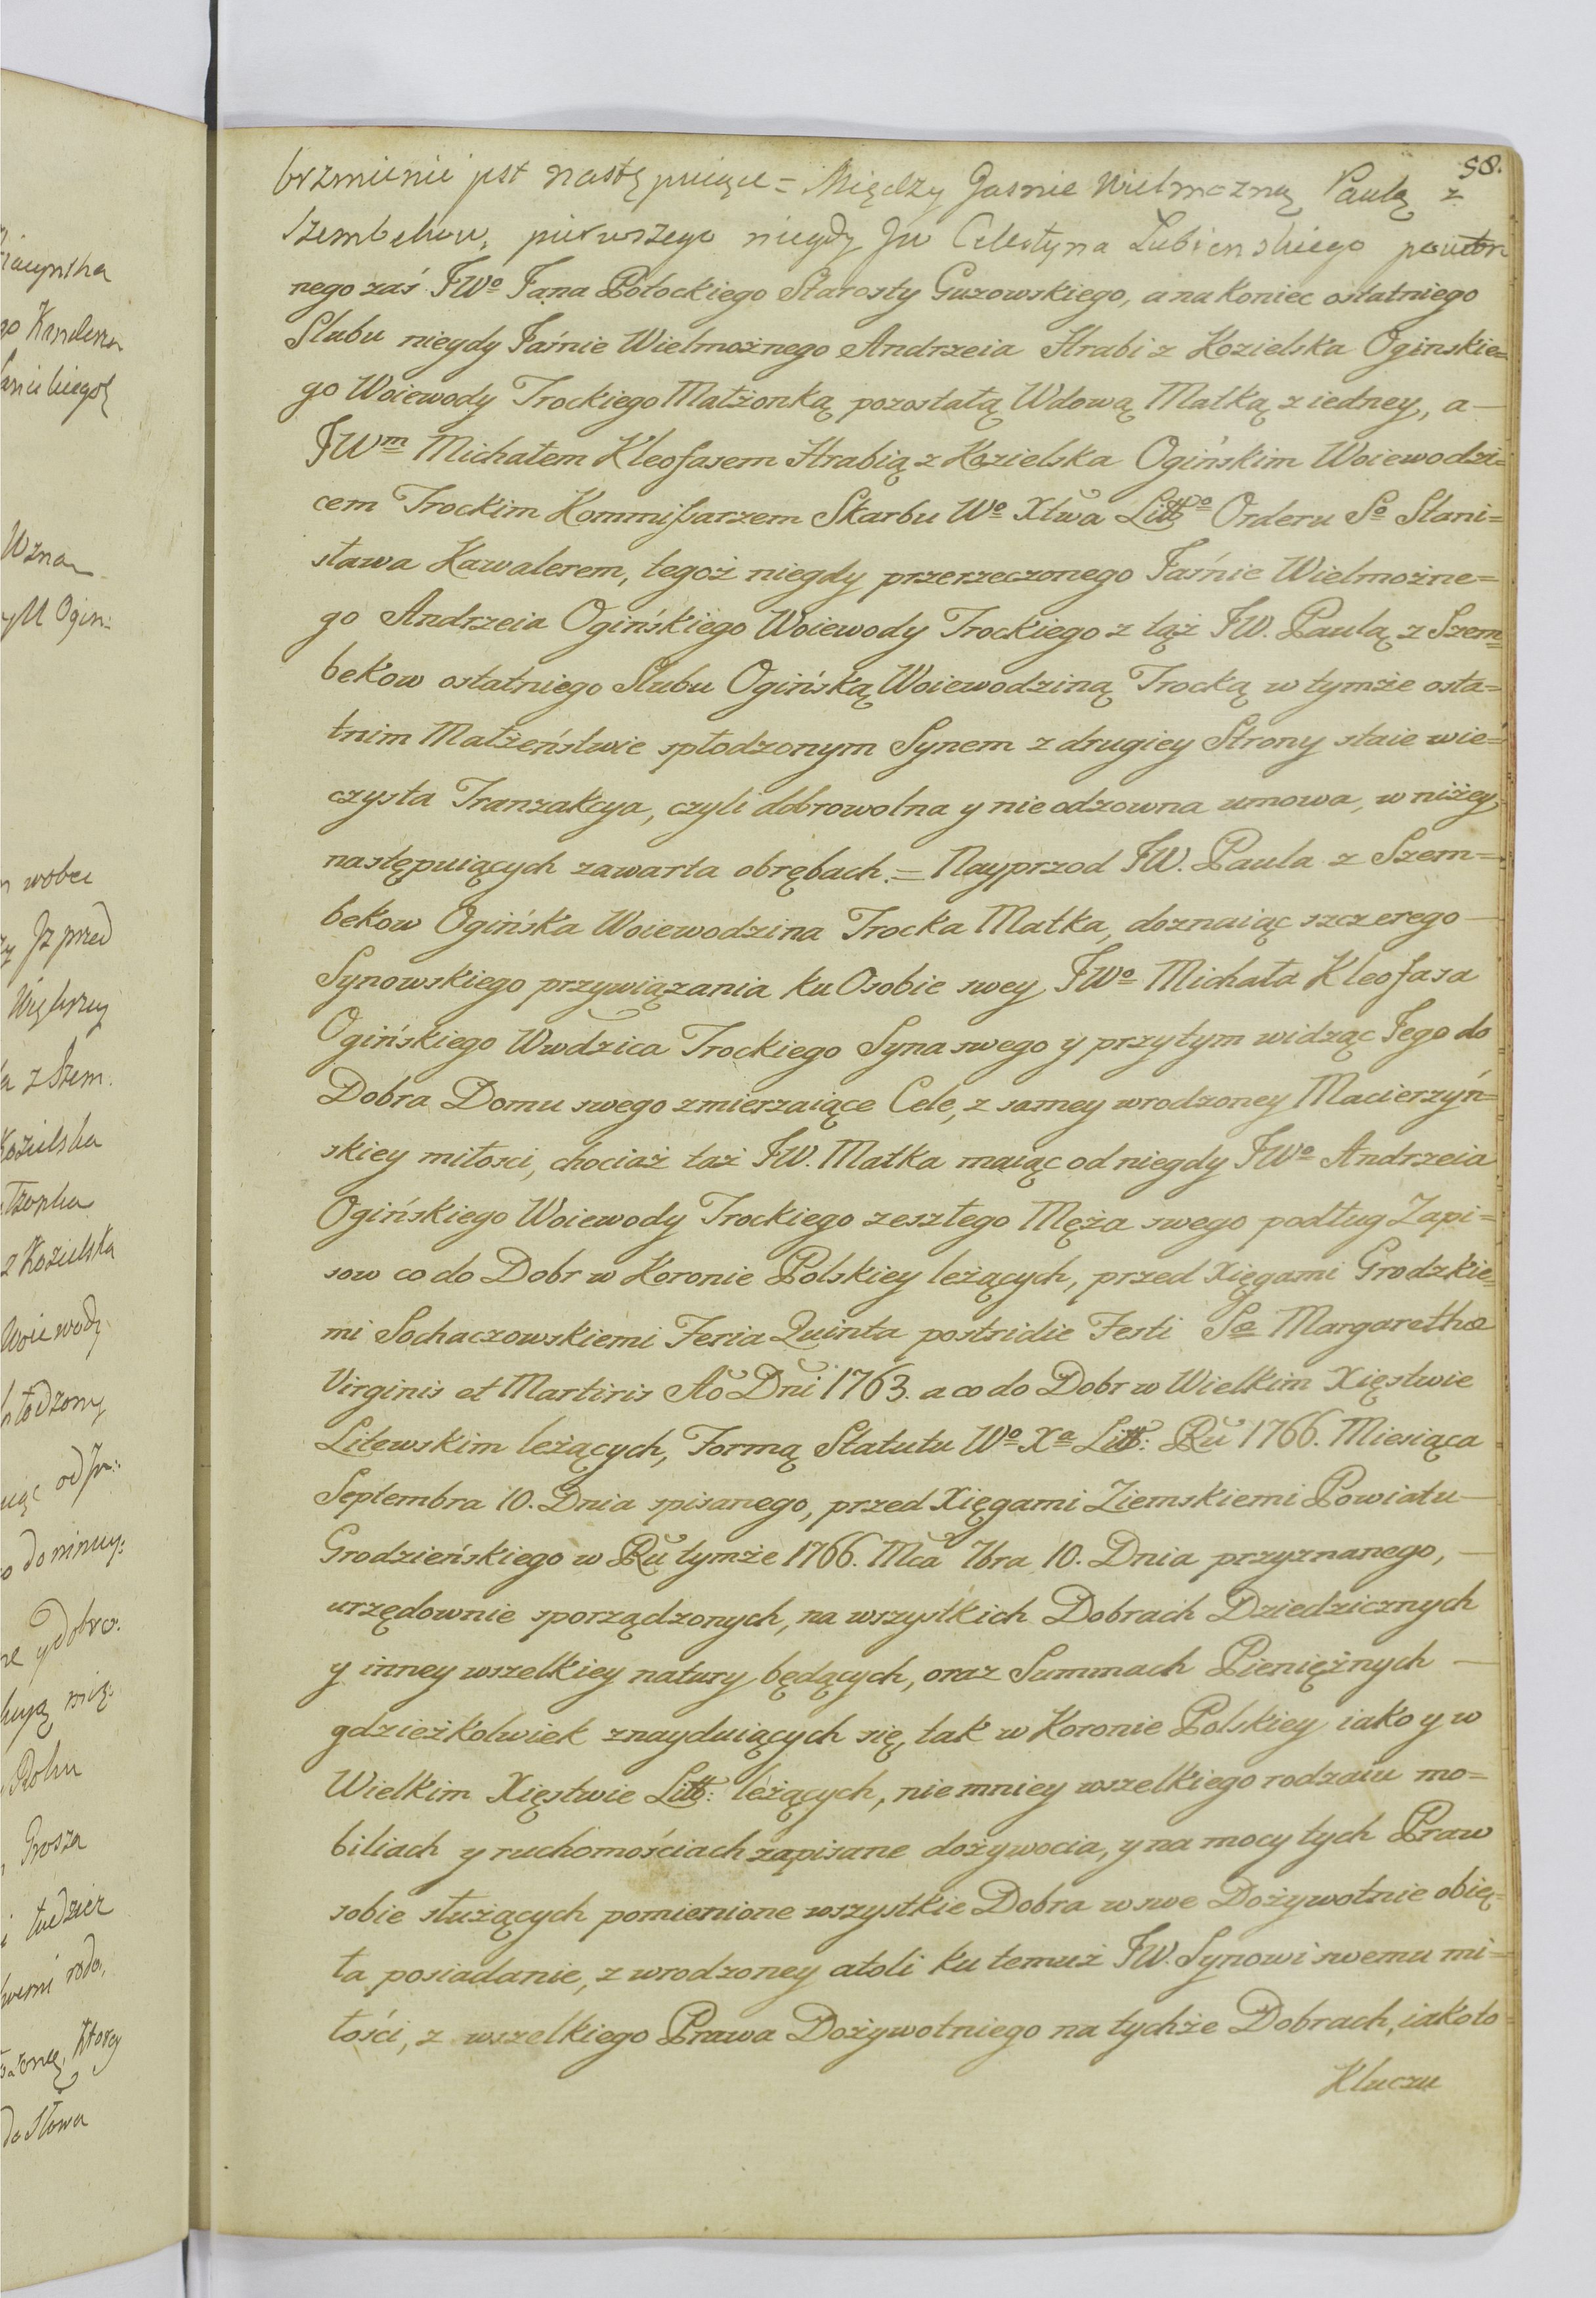 58.
brzmienie jest następuiące = Między Jasnie Wielmozną Paulą z
Szembekow, pierwszego niegdy Jw Celestyna Lubienskiego powtor
nego zaś JWo Jana Potockiego Starosty Guzowskiego, a na koniec ostatniego
Slubu niegdy Jaśnie Wielmożnego Andrzeia Hrabi z Kozielska Oginskie=
go Woiewody Trockiego Małżonką pozostałą Wdową Matką z iedney, a —
JWm Michałem Kleofasem Hrabią z Kozielska Ogińskim Woiewodzi=
cem Trockim Kommissarzem Skarbu Wo Xtwa Littgo Orderu So Stani=
sława Kawalerem, tegoż niegdy przerzeczonego Jaśnie Wielmożne=
go Andrzeia Ogińskiego Woiewody Trockiego z tąż JW. Paulą z Szem=
bekow ostatniego Slubu Ogińską Woiewodziną Trocką w tymże osta=
tnim Małżeństwie spłodzonym Synem z drugiey Strony staie wie=
czysta Tranzakcya, czyli dobrowolna y nie odzowna umowa, w niżey
następuiących zawarta obrębach. = Nayprzod JW. Paula z Szem=
bekow Ogińska Woiewodzina Trocka Matka, doznaiąc szczerego —
Synowskiego przywiązania ku Osobie swey JWo Michała Kleofasa
Ogińskiego Wwdzica Trockiego Syna swego y przytym widząc Jego do
Dobra Domu swego zmierzaiące Cele, z samey wrodzoney Macierzyń=
skiey miłosci, chociaż taż JW. Matka maiąc od niegdy JWo Andrzeia
Ogińskiego Woiewody Trockiego zeszłego Męża swego podług Zapi=
sow co do Dobr w Koronie Polskiey leżących, przed Xięgami Grodzkie=
mi Sochaczowskiemi Feria Quinta postridie Festi Sa Margarethæ
Virginis et Martiris Ao Dni 1763. a co do Dobr w Wielkim Xięstwie
Litewskim leżących, Formą Statutu Wo Xa Litt: Ru 1766. Miesiąca
Septembra 10. Dnia spisanego, przed Xięgami Ziemskiemi Powiatu —
Grodzieńskiego w Ru tymże 1766. Mca 7bra 10. Dnia przyznanego, —
urzędownie sporządzonych, na wszystkich Dobrach Dziedzicznych
y inney wszelkiey natury będących, oraz Summach Pieniężnych —
gdzieżkolwiek znayduiących się, tak w Koronie Polskiey iako y w
Wielkim Xięstwie Litt: leżących, nie mniey wszelkiego rodzaiu mo=
biliach y ruchomościach zapisane dożywocia, y na mocy tych Praw
sobie służących pomienione wszystkie Dobra w swe Dożywotnie obię=
ta posiadanie, z wrodzoney atoli ku temuż JW. Synowi swemu mi=
łości, z wszelkiego Prawa Dożywotniego na tychże Dobrach, iako to
Kluczu
wobec
z Szem.
Kozielska
z Kozielska
Woiewody